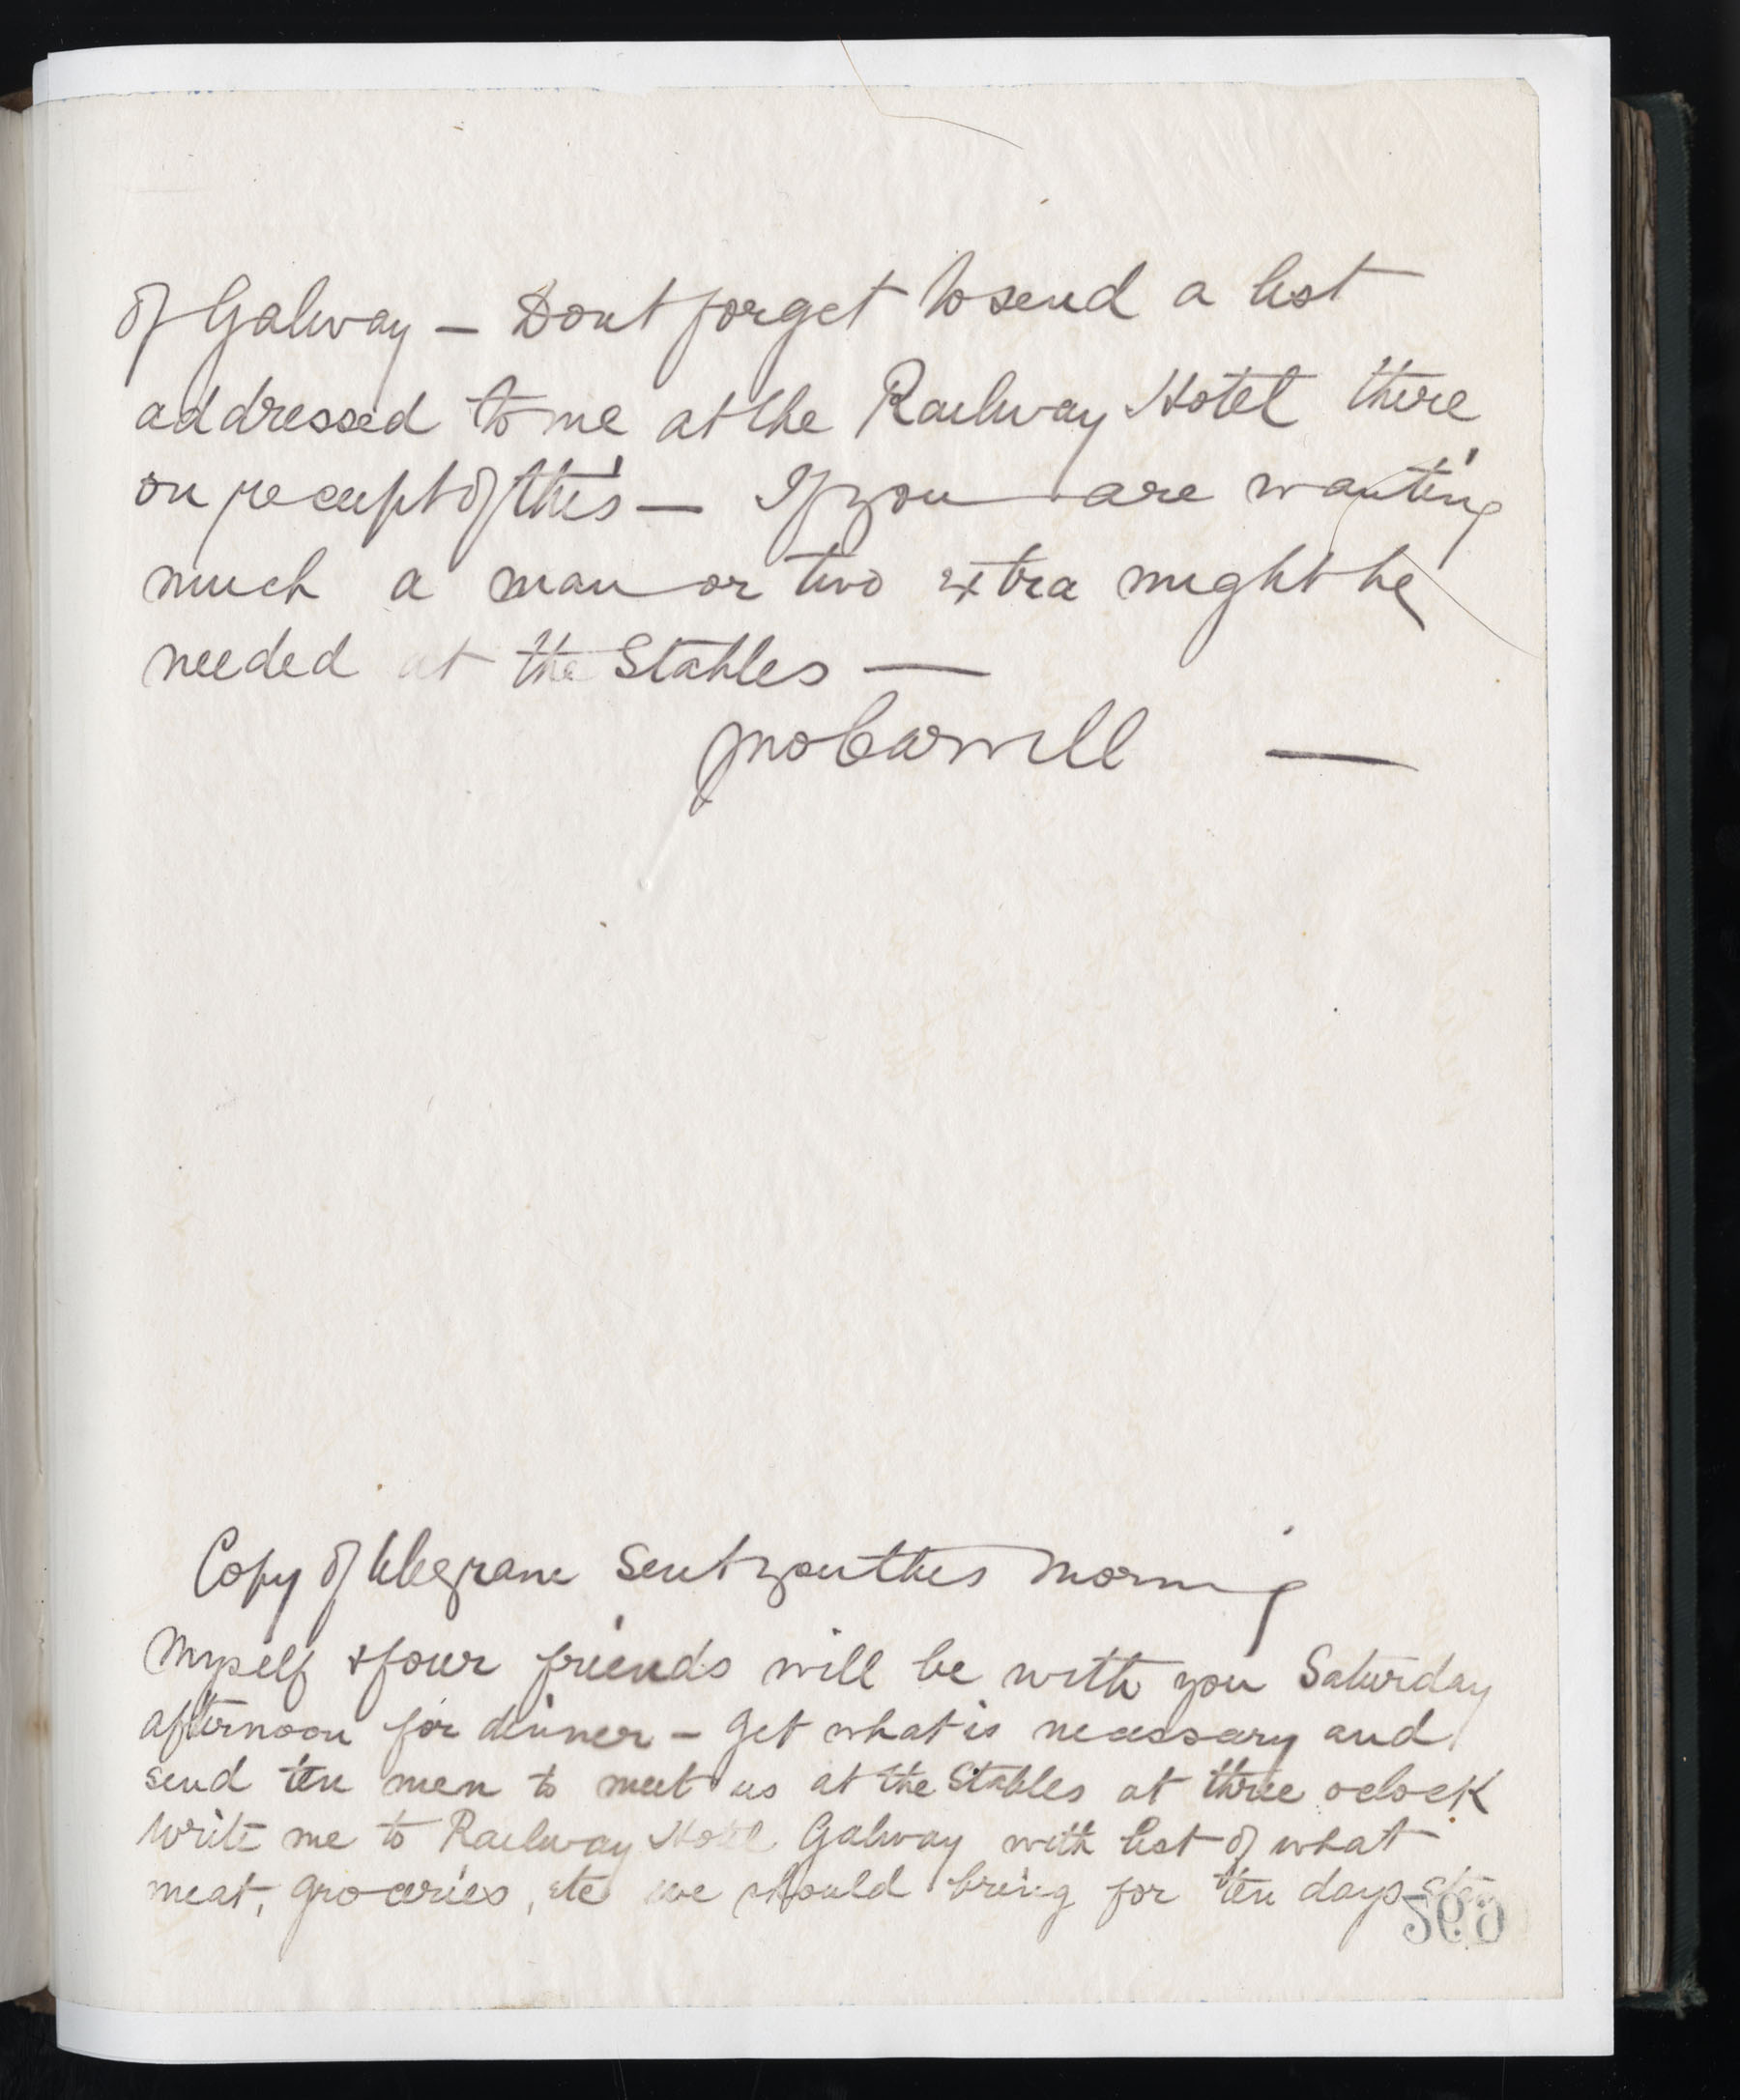 of Galway — Dont forget to send a list
addressed to me at the Railway Hotel there
on receipt of this — If you are wanting
much a man or two extra might be
needed at the Stables —
—
Copy of telegram sent you this morning
Myself & four friends will be with you Saturday
afternoon for dinner — get what is necessary and
send ten men to meet us at the Stables at three oclock
Write me to Railway Hotel Galway with list of what
meat, groceries, etc we should bring for ten days